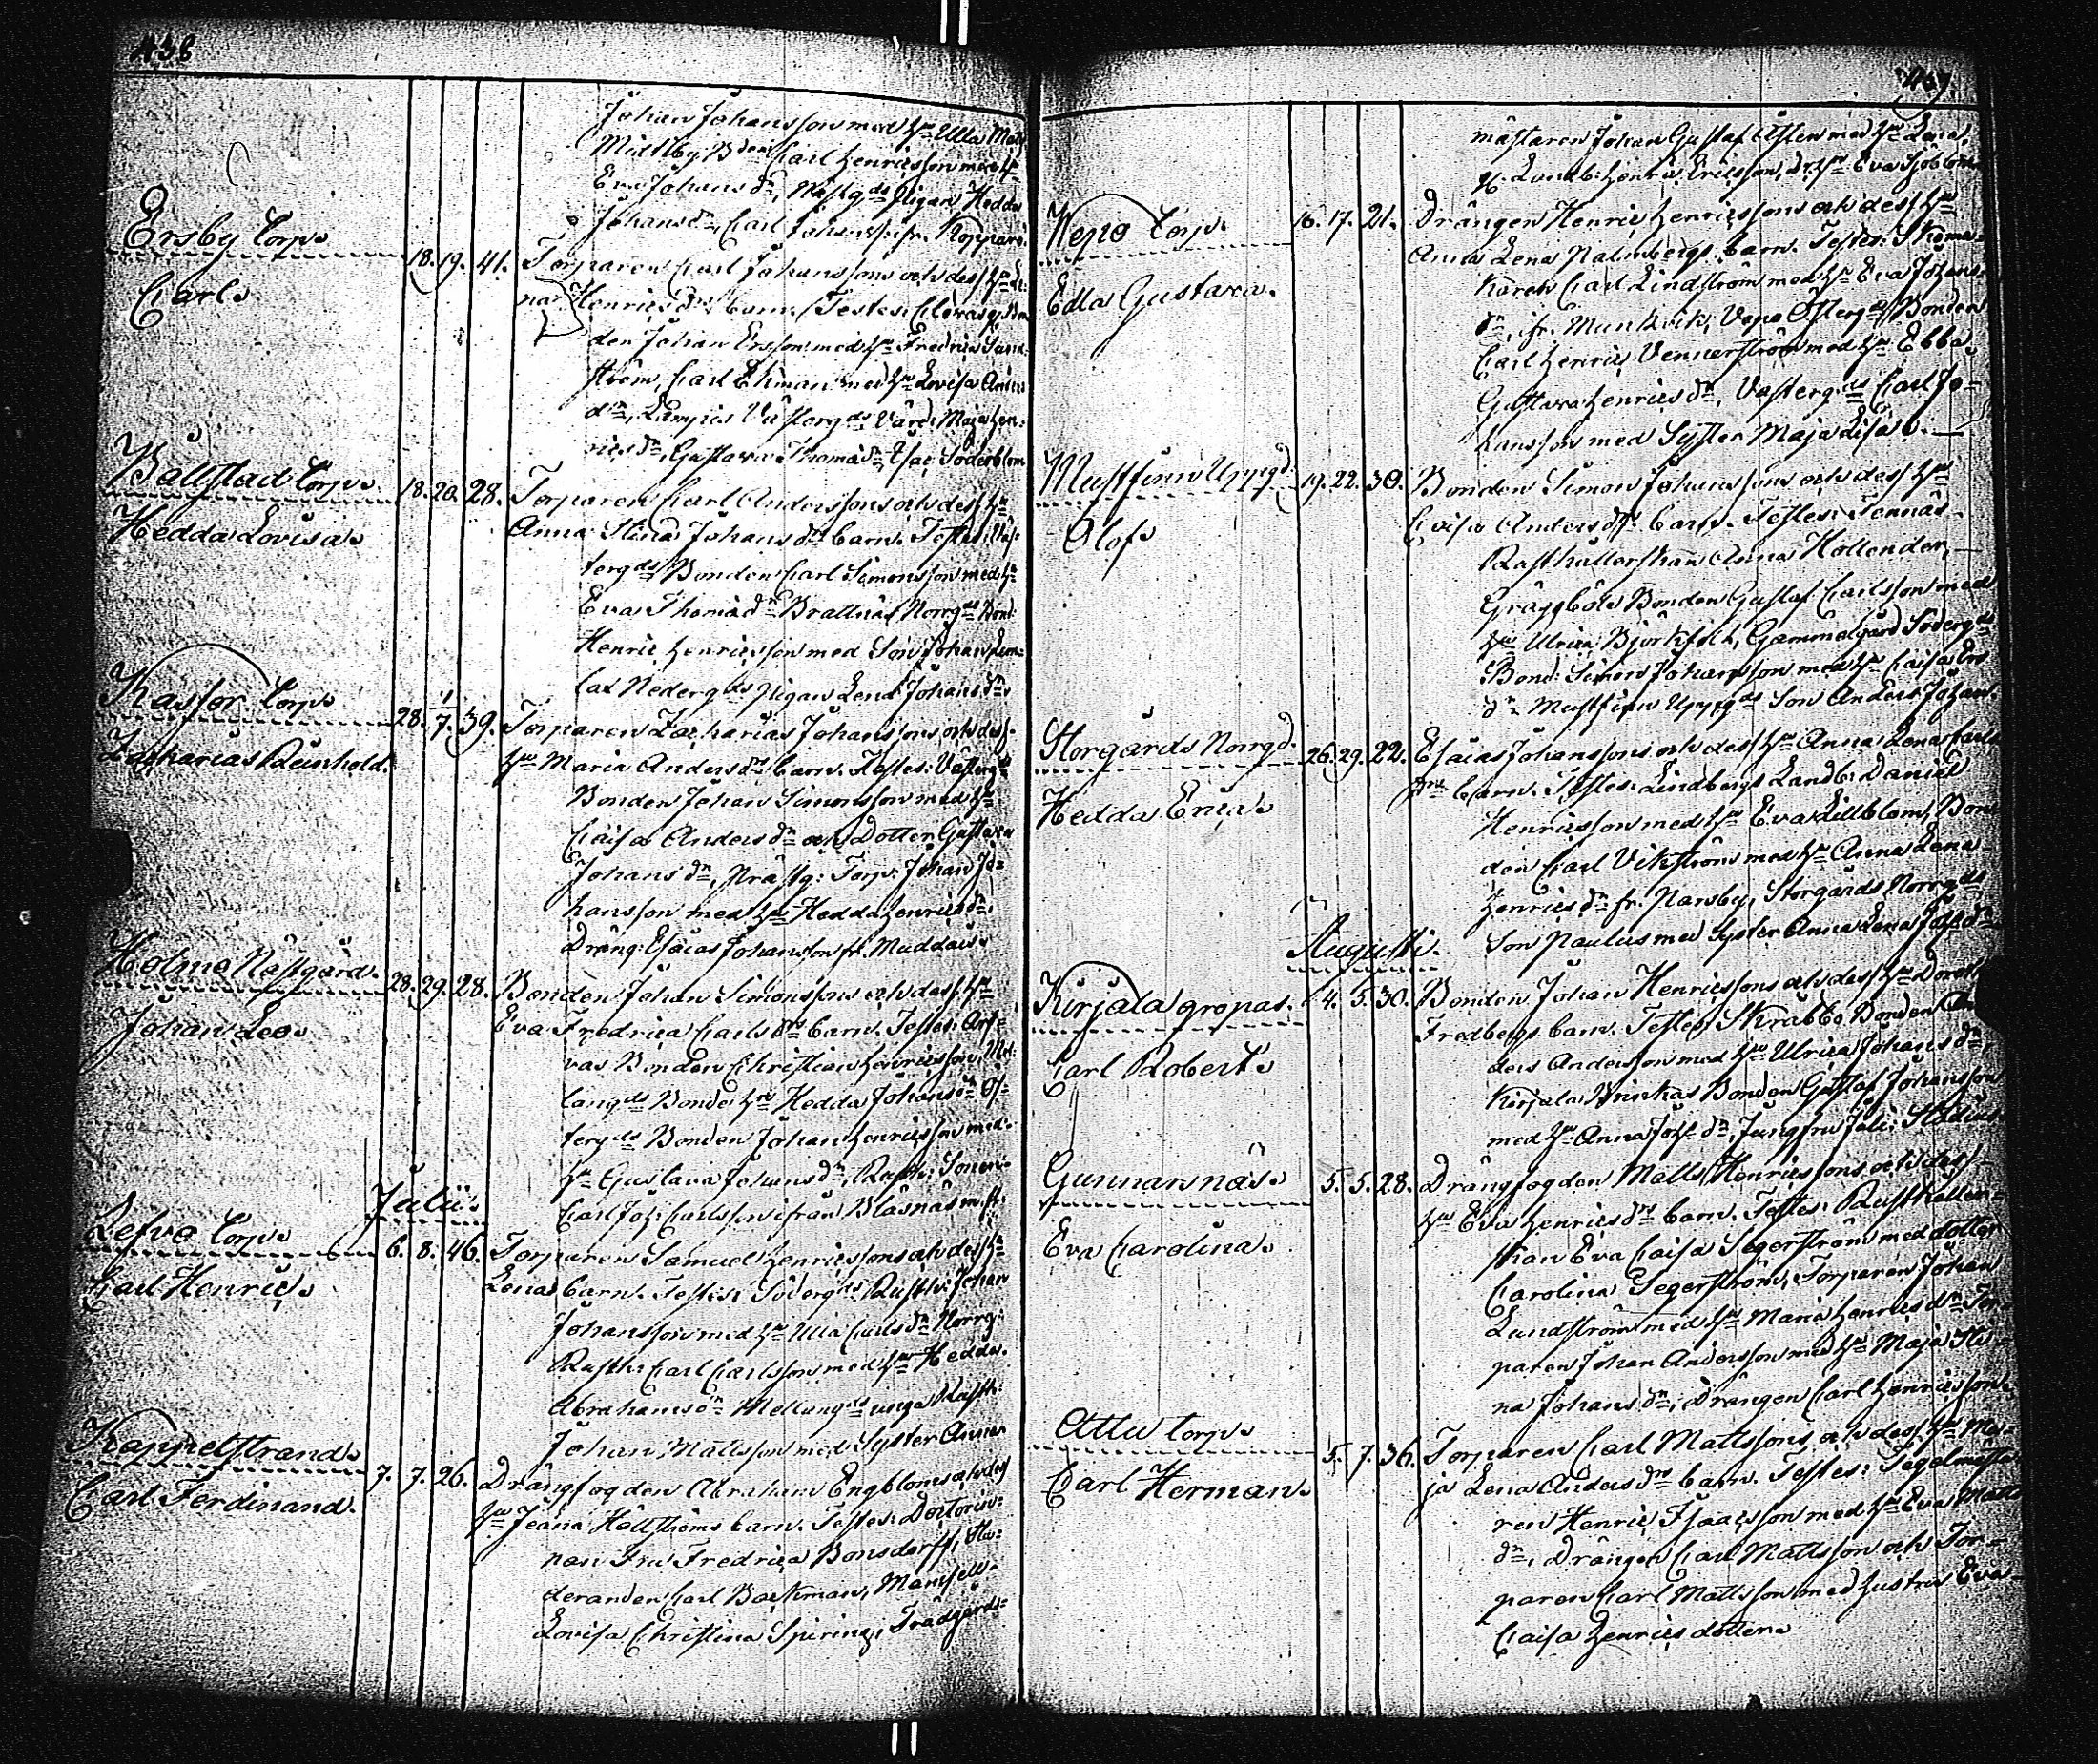 438
Johan Johansson med h:u Ulla Matts
Mielby: Bonden Carl Henricsson med h:u
Eva Johans d:r, Nästg:ds Pigan Hedda
Johans d:r, Carl Johans s. ifr. Koppar
Ersby Torp.
18. 19. 41. Torparen Carl Johanssons och dess h:u Le-
Carl.
na Henrics d:rs barn. Testes: Clemasg. Bon
den Johan Ersson med h:u Fredrica Sand-
ström, Carl Ekman med h:u Lovisa Anders
d:r, Lampis Västerg:ds Värd: Maja Hen-
rics d:r, Gustava Thomæ d:r Esac Söderblom
Vallstad Torp.
18. 20. 28. Torparen Carl Anderssons och dess h:u
Hedda Lovisa.
Anna Stina Johans d:rs barn. Testes: Väs-
terg:ds Bonden Carl Simonsson med h:u
Eva Thomæ d:r Brattnäs Norrg:ds Bond:
Henric Henricsson med Son Johan, Lem-
lax Nederg:ds pigan Lena Johans d:r
Kassor Torp.
28. 1/7. 39. Torparen Zacharias Johanssons och dess
Zacharias Reinhold.
h:u Maria Anders d:rs barn. Testes: Västerg:ds
Bonden Johan Simonsson med h:u
Caisa Anders d:r och Dotter Gustava
Johans d:r, Prästg: Torp: Johan Jo-
hansson med h:u Hedda Henrics d:r,
Dräng: Esaias Johansson fr. Muddais.
Holmo Nästgård.
28. 29. 28. Bonden Johan Simonssons och dess h:u
Johan Leo.
Eva Fredrica Carls d:rs barn. Testes: Arf-
vas Bonden Christian Henricsson, Mel-
lang:ds Bonde h:u Hedda Johans d:r Ös-
terg:ds Bonden Johan Henricsson med
h:u Gustava Johans d:r, Rusth: Sonen
Carl Joh: Carlsson ifrån Blåsnäs
Julii.
Lefvo Torp.
6. 8. 46. Torparen Samuel Henricssons och dess h:u
Carl Henric.
Lenas barn. Testes: Söderg:ds Rusth: Johan
Johansson med h:u Ulla Carls d:r Norrg:
Rusth: Carl Carlsson med h:u Hedda
Abrahams d:r Mellang:ds unga Rusth:
Johan Mattsson med Syster Anna
Kappelstrand.
7. 7. 26. Drängfogden Abraham Engbloms och dess
Carl Ferdinand.
h:u Jeana Hällströms barn. Testes: Doctorin-
nan Fru Fredrica Bonsdorff, Stu-
deranden Carl Backman, Mamsell
Lovisa Christina Spiring, Trädgårds-
439.
mästaren Johan Gustaf Asten med h:u Lena,
H. Landb: Henric Ericsson, dess h:u Eva Sjöblom
Wepo Torp.
16. 17. 21. Drängen Henric Henricssons och dess h:u
Edla Gustava.
Anna Lena Malmbergs barn. Testes: Skoma-
karen Carl Lindström med h:u Eva Johans
d:r, ifr. Munkvik, Vepo Österg:ds Bonden
Carl Henric Vennerström med h:u Ebba
Gustava Henrics d:r, Västerg:ds Carl Jo-
hansson med Syster Maja Lisa.
Mustfinn Uppg:d
19. 22. 30. Bonden Simon Johanssons och dess h:u
Olof.
Caisa Anders d:rs barn. Testes: Tennäs
Rusthållerskan Anna Hollender,
Gräggböle Bonden Gustaf Carlsson med
h:u Ulrica Björkfelt, Gammelgård Söderg:ds
Bond: Simon Johansson med h:u Caisa Ers
d:r Mustfinn Uppg:ds Son Anders Johan
Storgårds Norrg:d.
26. 29. 22. Esaias Johanssons och dess h:u Anna Lena Carls
Hedda Erica.
d:rs barn. Testes: Lindbergs Landb: Daniel
Henricsson med h:u Eva Lillblom, Bon
den Carl Vikström med h:u Anna Lena
Henrics d:r fr. Parsby, Storgårds Norrg:ds
Son Paulus med Syster Anna Lena Joh:s d:r
Augusti.
Kirjala gropas.
4. 5. 30. Bonden Johan Henricssons och dess h:u Doroth
Carl Robert.
Fredbergs barn. Testes: Skräbbo Bonden An
ders Andersson med h:u Ulrica Johans d:r,
Kirjala Brinkas Bonden Gustaf Johansson
med h:u Anna Joh:s d:r, Jungfru Juli:
Gunnarsnäs.
5. 5. 28. Drängfogden Matts Henricssons och dess
Eva Carolina.
h:u Eva Henrics d:rs barn. Testes: Rusthållers-
kan Eva Caisa Segerström med dotter
Carolina Segerström, Torparen Johan
Lundström med h:u Maria Henrics d:r Tor-
paren Johan Andersson med h:u Maja Sti-
na Johans d:r, Drängen Carl Henricsson.
Attu Torp.
5. 7. 36. Torparen Carl Mattssons och dess h:u Ma-
Carl Herman.
ja Lena Anders d:rs barn. Testes: Tegelmästa
ren Henric Isaacsson med h:u Eva Matts
d:r, Drängen Carl Mattsson och Tor-
paren Carl Mattsson med hustru Eva
Caisa Henrics dotter.